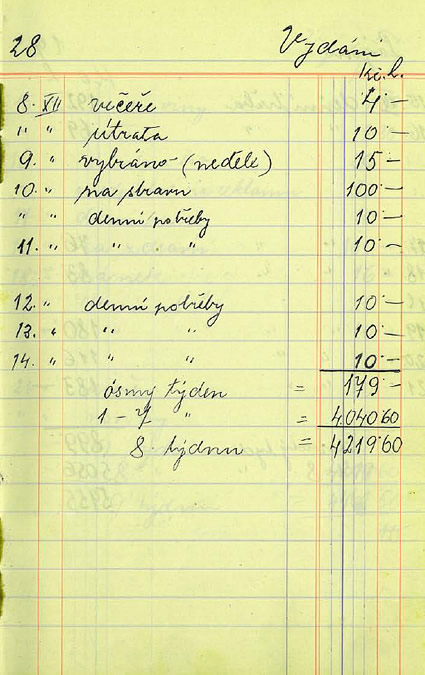 28 Vydání
Kč. h.
8. XII večeře 4 -
" " útrata 10 -
9. " vybráno (neděle) 15 -
10. " na stravu 100 -
" " denní potřeby 10 -
11. " " " 10 -
12. " denní potřeby 10 -
13. " " " 10 -
14. " " " 10 -
ósmý týden = 179 -
1 - 7 " = 4.040 60
8 týdnů = 4219 60